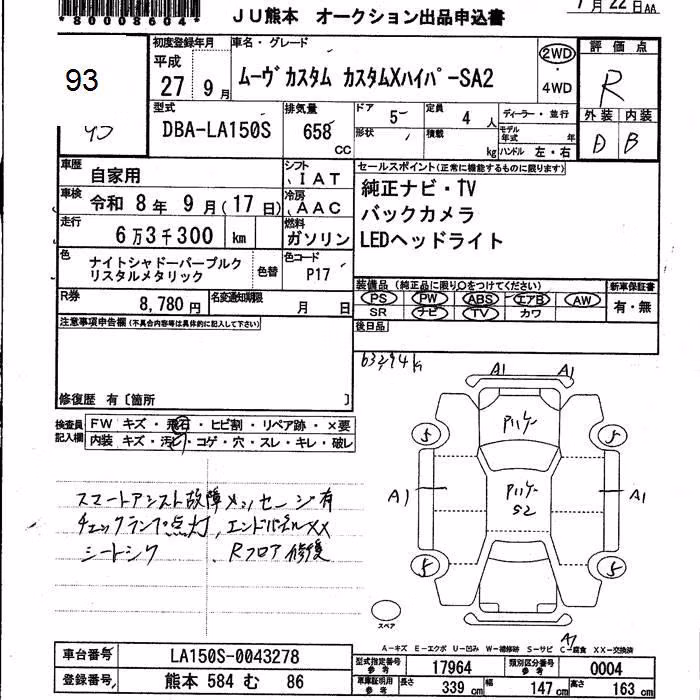 *80008604*
JU熊本 オークション出品申込書
7月22日AA
93
初度登録年月
平成
27 9月
車名・グレード
ムーヴカスタム カスタムXハイパーSA2
2WD
・
4WD
評価点
R
外装 内装
D B
型式
DBA-LA150S
排気量
658 CC
ドア 5
形状
定員 4 人
積載 kg
ディーラー・並行
モデル年式 年
ハンドル 左・右
車歴
自家用
シフト
IAT
車検
令和 8年 9月(17日)
冷房
AAC
走行
6万3千300 km
燃料
ガソリン
色
ナイトシャドーパープルク
リスタルメタリック
色替
色コード
P17
R券
8,780円
名変通知期限
月 日
セールスポイント(正常に機能するものに限ります)
純正ナビ・TV
バックカメラ
LEDヘッドライト
装備品(純正品に限り○をつけてください)
PS PW ABS エアB AW
SR ナビ TV カワ
新車保証書
有・無
後日品
注意事項申告欄(不具合内容等は具体的に記入して下さい)
修復歴 有〔箇所 〕
検査員
記入欄
FW キズ・飛石・ヒビ割・リペア跡・×要
内装 キズ・汚ビ・コゲ・穴・スレ・キレ・破レ
63294km
スマートアシスト故障メッセージ有
チェックランプ点灯、エンドパネルXX
シートシワ 、Rフロア修復
A1 A1
5 5
A1 A1
S2
5 5
スペア
A-キズ E-エクボ U-凹み W-補修跡 S-サビ C-腐食 XX-交換済
車台番号
LA150S-0043278
登録番号
熊本 584 む 86
型式指定番号
参考
17964
類別区分番号
参考
0004
車庫証明用
参考
長さ 339 cm
幅 147 cm
高さ 163 cm